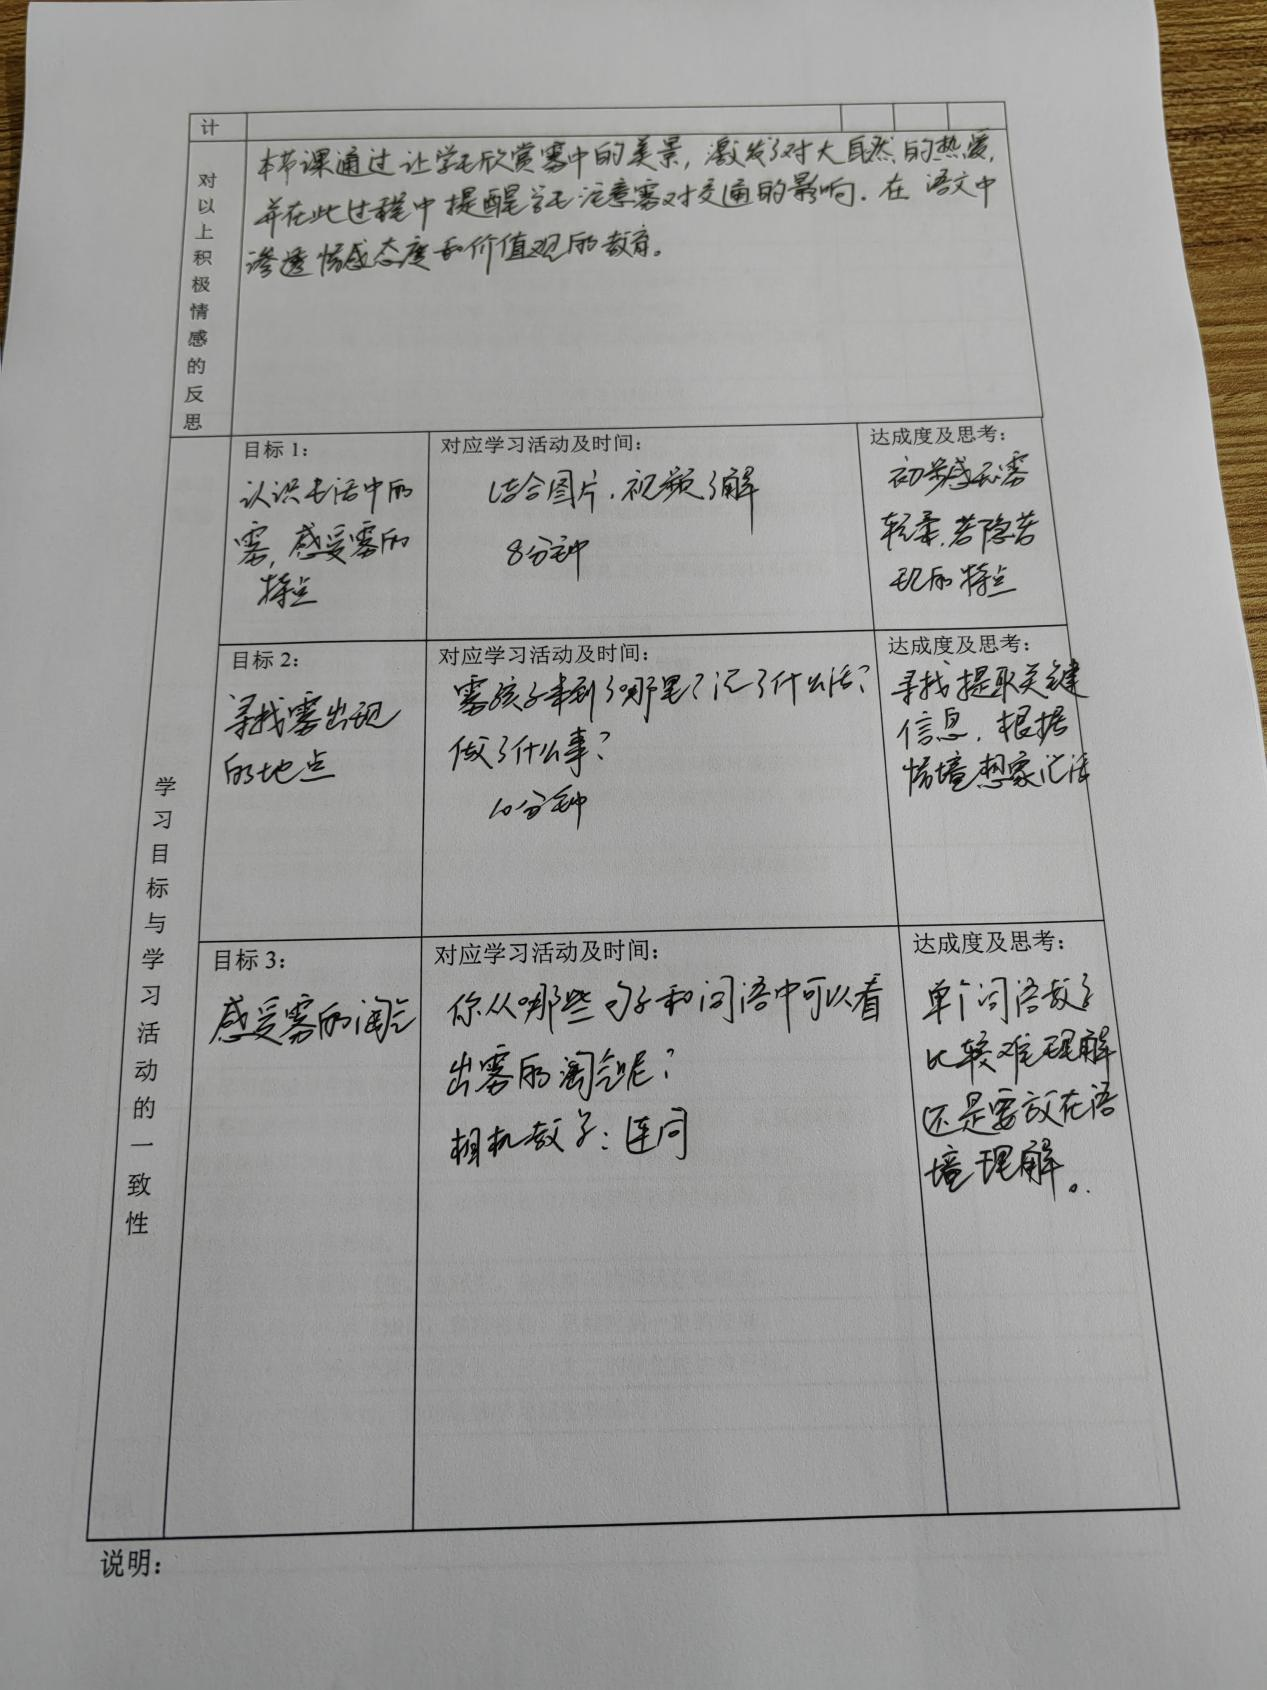 计
对以上积极情感的反思
本节课通过让学生欣赏雾中的美景，激发了对大自然的热爱，
并在此过程中提醒学生注意雾对交通的影响．在语文中
渗透情感态度和价值观的教育。
学习目标与学习活动的一致性
目标1：
认识生活中的
雾，感受雾的
特点
对应学习活动及时间：
结合图片．视频了解
8分钟
达成度及思考：
初步感知雾
轻柔，若隐若
现的特点
目标2：
寻找雾出现
的地点
对应学习活动及时间：
雾孩子来到了哪里？说了什么话？
做了什么事？
10分钟
达成度及思考：
寻找提取关键
信息．根据
情境想象说话
目标3：
感受雾的淘气
对应学习活动及时间：
你从哪些句子和词语中可以看
出雾的淘气呢？
相机教学：连同
达成度及思考：
单个词语教学
比较难理解
还是要放在语
境理解。
说明：